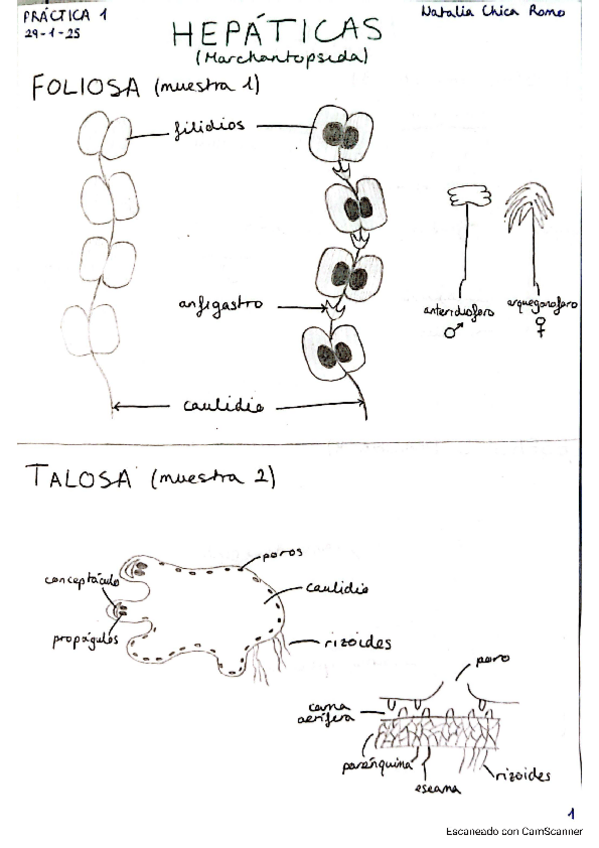 PRÁCTICA 1
29-1-25
Natalia Chica Romo
HEPÁTICAS
(Marchantopsida)
FOLIOSA (muestra 1)
filidios
anfigastro
anteridioforo
♂
arquegonoforo
♀
caulidio
TALOSA (muestra 2)
poros
conceptáculo
caulidio
propágulos
rizoides
poro
cama
aerífera
parénquima
rizoides
escama
1
Escaneado con CamScanner